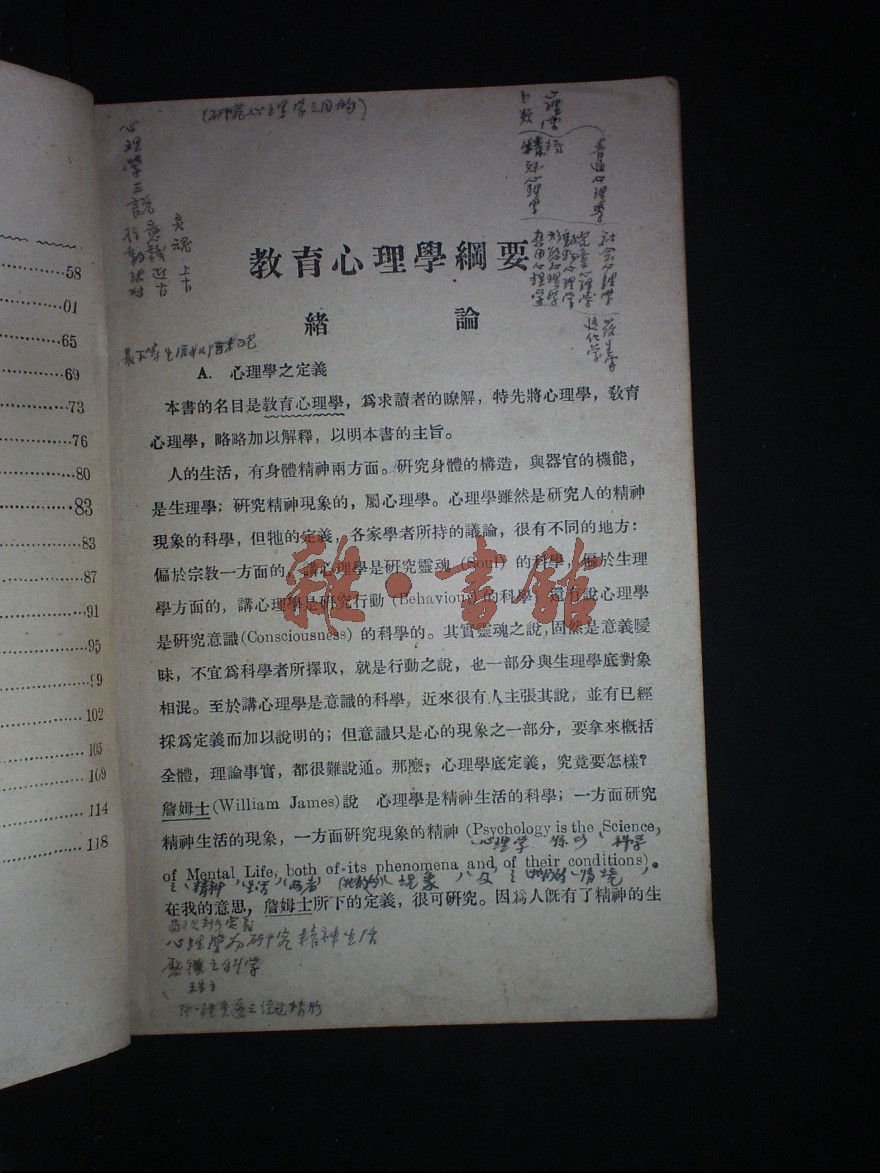 58
01
65
69
73
76
80
83
83
87
91
95
99
102
105
109
114
118
心理學三說
靈魂 上古
意識 近古
教育心理學綱要
緒論
A. 心理學之定義
本書的名目是教育心理學，爲求讀者的瞭解，特先將心理學，敎育
心理學，略略加以解釋，以明本書的主旨。
人的生活，有身體精神兩方面。研究身體的構造，與器官的機能，
是生理學；研究精神現象的，屬心理學。心理學雖然是研究人的精神
現象的科學，但牠的定義，各家學者所持的議論，很有不同的地方：
偏於宗教一方面的，講心理學是研究靈魂 (Soul) 的科學，偏於生理
學方面的，講心理學是研究行動 (Behaviour) 的科學，還有說心理學
是研究意識(Consciousness) 的科學的。其實靈魂之說，固然是意義曖
昧，不宜爲科學者所擇取，就是行動之說，也一部分與生理學底對象
相混。至於講心理學是意識的科學，近來很有人主張其說，並有已經
採爲定義而加以說明的；但意識只是心的現象之一部分，要拿來概括
全體，理論事實，都很難說通。那麽；心理學底定義，究竟要怎樣？
詹姆士(William James)說 心理學是精神生活的科學；一方面研究
精神生活的現象，一方面研究現象的精神 (Psychology is the Science,
心理學 科學
of Mental Life, both of its phenomena and of their conditions)。
精神 生活 現象 及 情境
在我的意思，詹姆士所下的定義，很可研究。因爲人旣有了精神的生
心理學为研究精神生活
之科學
雜·書館